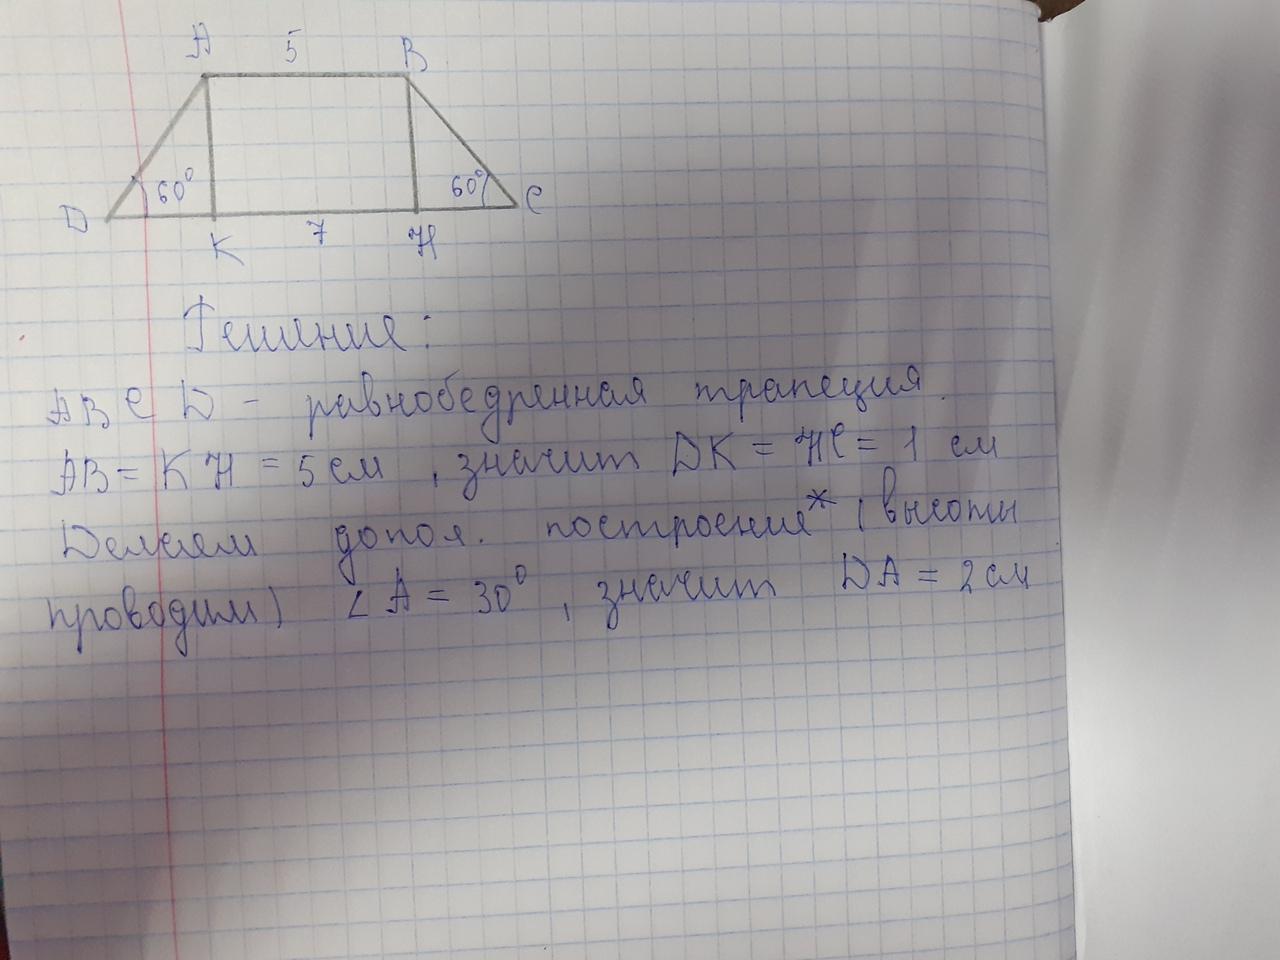 A 5 B
60° 60°
D C
K 7 H
Решение:
ABCD - равнобедренная трапеция.
AB = KH = 5 см, значит DK = HC = 1 см
Делаем допол. построение* (высоты
проводим) ∠A = 30°, значит DA = 2 см